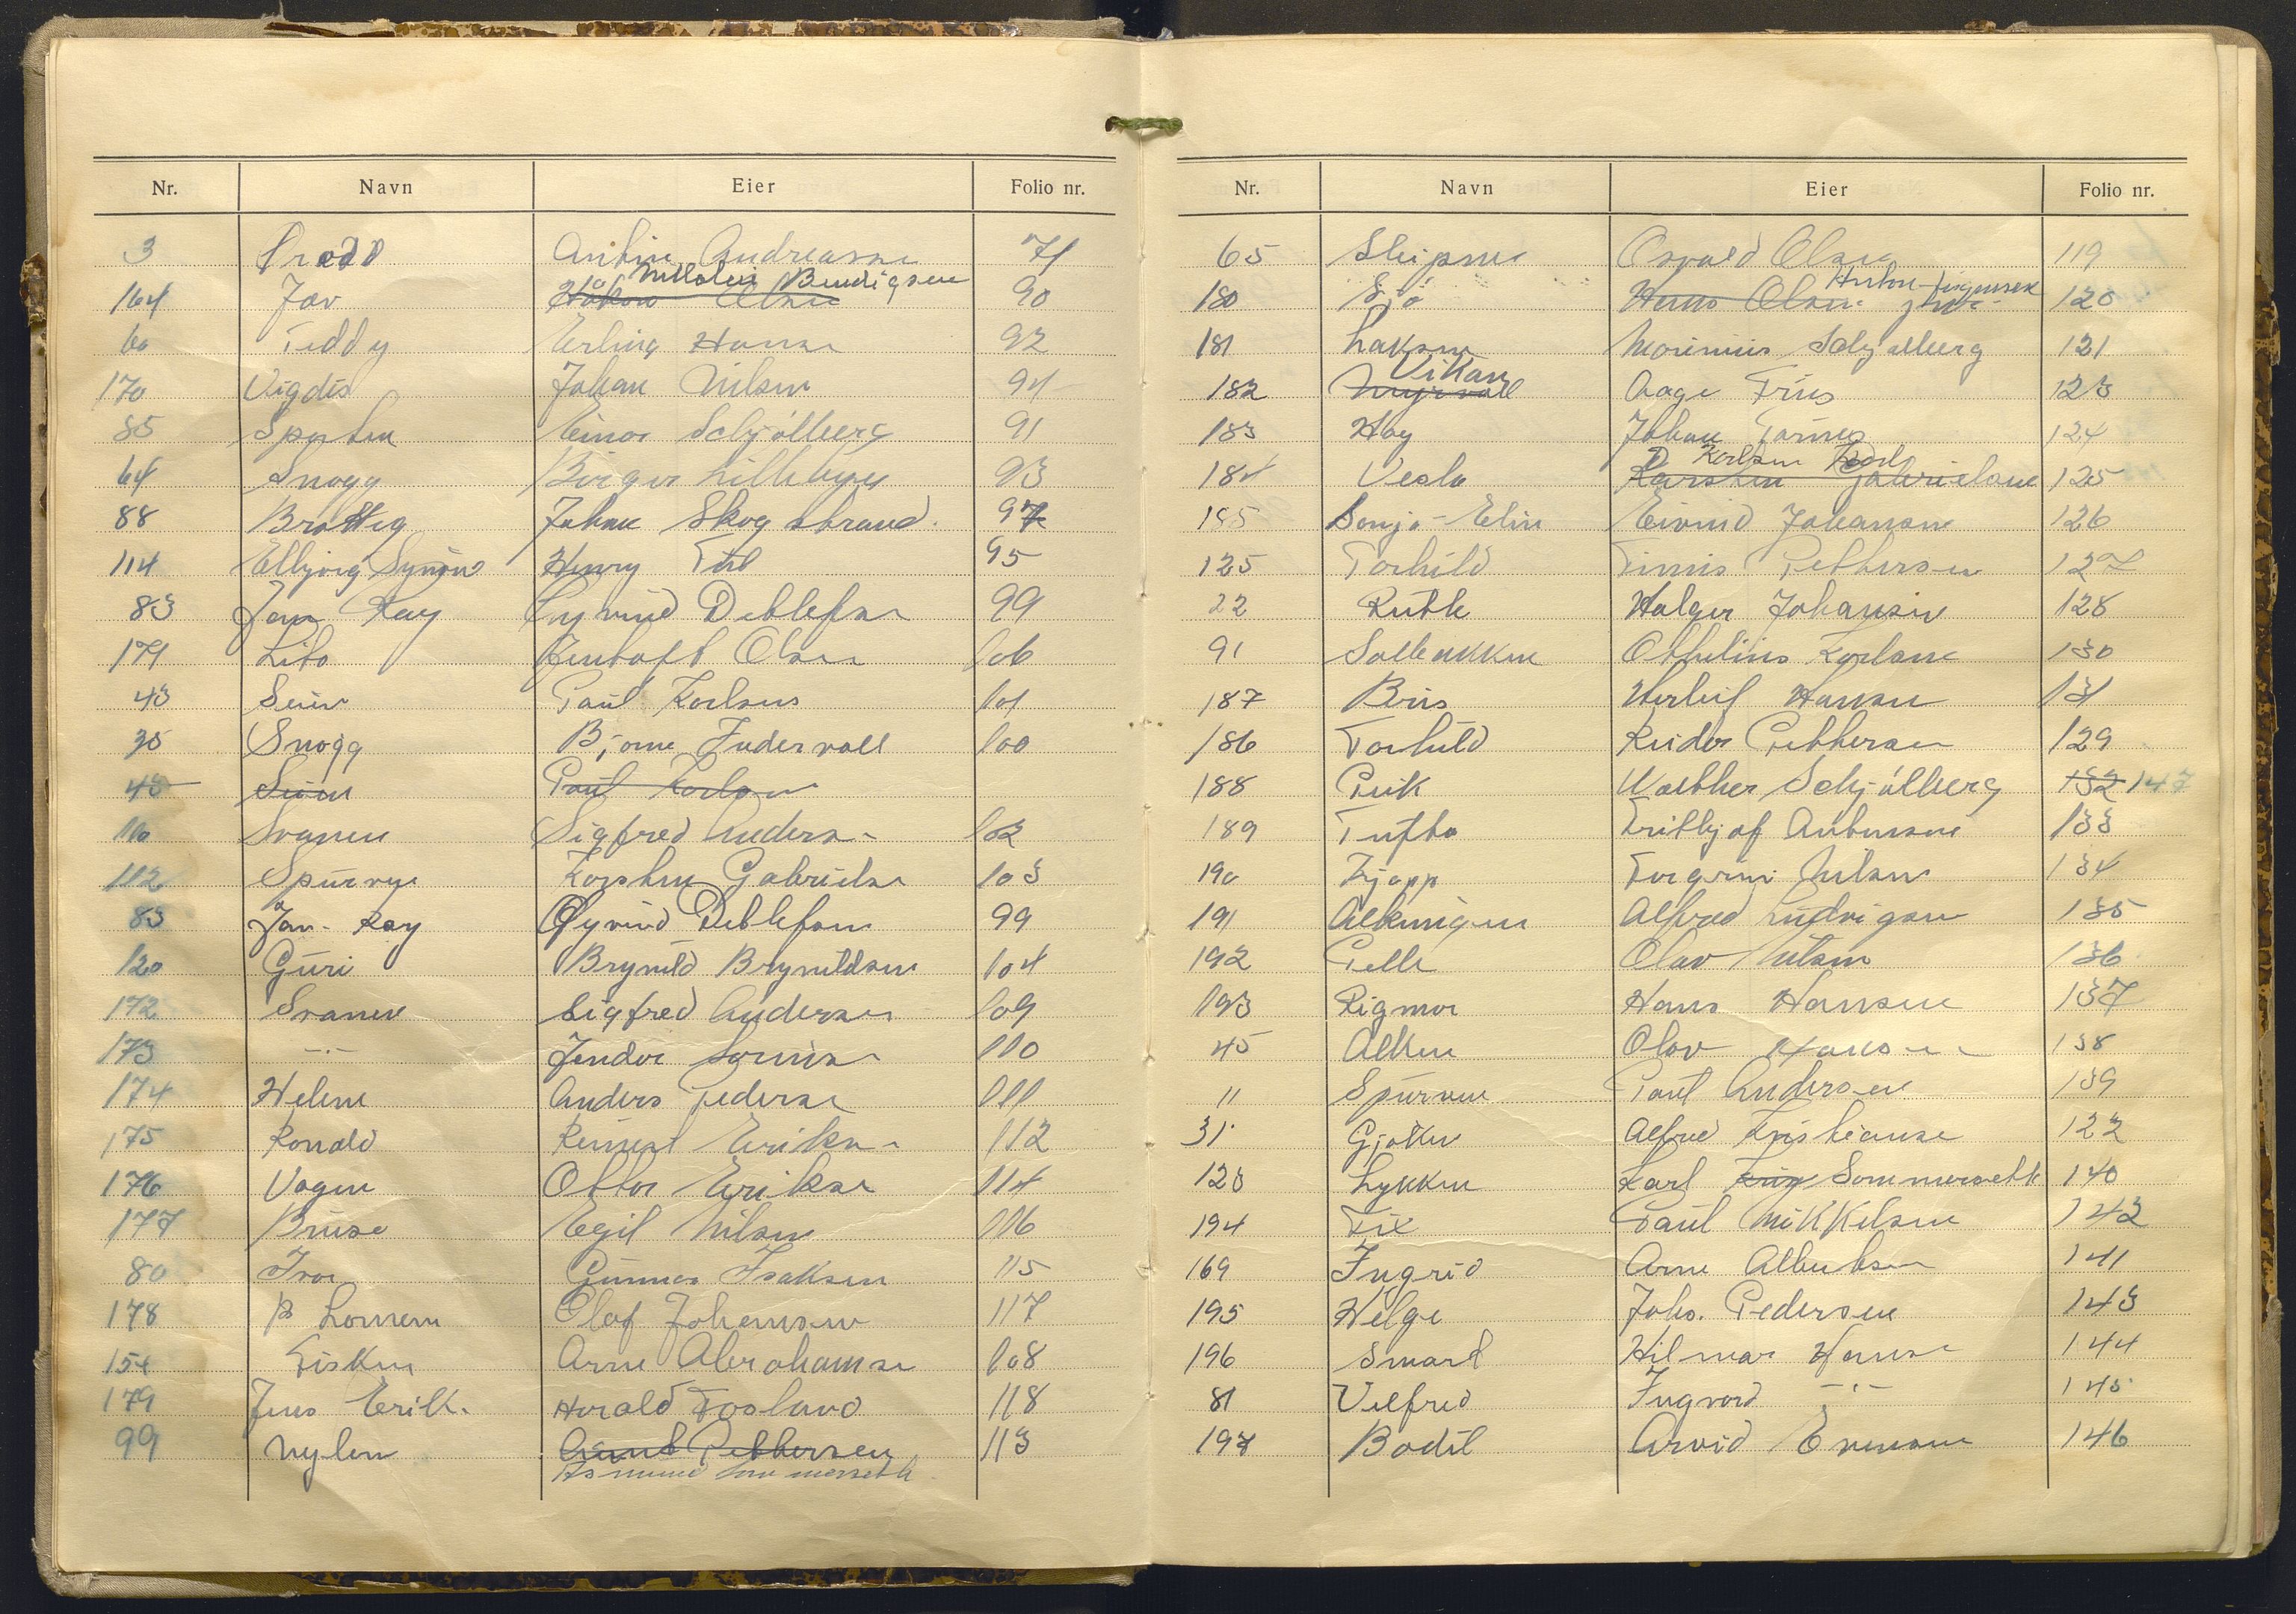 Nr. Navn Eier Folio nr.
3 Prodd Andreassen 71
Nikolai Bendigsen
164 Jov Håkon Olsen 90
60 Teddy Erling Hansen 92
170 Vigdis Johan Nilsen 94
85 Einar Schjølberg 91
64 Snogg Birger 93
88 Brotteg Johan Skogstrand. 97
114 Elbjørg Synøve Henry 95
83 Jan Ray Øyvind Detlefsen 99
179 Lito Jentoft Olsen 106
43 Seien Paul Karlsen 101
35 Snøgg Bjarne Indervoll 100
43 Paul Karlsen
110 Svanen Sigfred Andersen 102
112 Spurven Karsten Gabrielsen 103
83 Jan-Ray Øyvind Detlefsen 99
120 Guri Brynild Brynildsen 104
172 Svanen Sigfred Andersen 109
173 -"- Jendor 110
174 Helene Anders Pedersen 111
175 Ronald Eriksen 112
176 Vagen Ottar Eriksen 114
177 Bruse Egil Nilsen 116
80 Ivar Gunnar Isaksen 115
178 Lommen Olaf Johansen 117
154 Fisken Arne Abrahamsen 108
179 Jens Erik. Harald Fosland 118
99 Nylen Arnt Pettersen 113
Asmund Sommerseth
Nr. Navn Eier Folio nr.
65 Sleipner Osvald Olsen 119
Anton Jørgensen
180 Sjø Hans Olsen 120
181 Laksen Schjølberg 121
Vikan
182 Aage Friis 123
183 Hay Johan 124
Karlsen Karl
184 Vesla Karsten Gabrielsen 125
185 Sonja-Elin Eivind Johansen 126
125 Torhild Pettersen 127
22 Ruth Holger Johansen 128
91 Othelius Karlsen 130
187 Bris Herleif Hansen 131
186 Torhild Reidar Pettersen 129
188 Perik Walther Schjølberg 132 147
189 Tufta Fritjof Antonsen 133
190 Kjapp Torgeir Nilsen 134
191 Alkeungen Alfred Ludvigsen 135
192 Pelle Olav Nilsen 136
193 Rigmor Hans Hansen 137
45 Alken Olav Hansen 138
11 Spurven Paul Andersen 139
31 Gjøken Alfred Kristiansen 122
123 Lykken Karl Sommerseth 140
194 Fix Paul Mikkelsen 142
169 Ingrid Arne Albertsen 141
195 Helge Johs. Pedersen 143
196 Smart Hilmar Hansen 144
81 Vilfred Ingvard -"- 145
197 Bodil Arvid Evensen 146